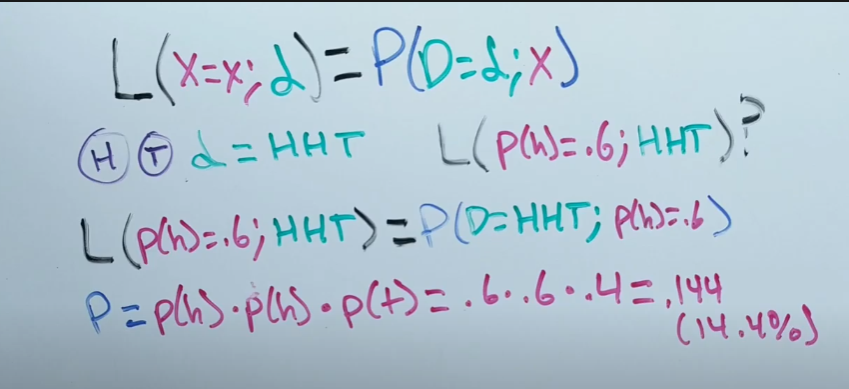 L(X=x; d)=P(D=d;x)
H T d=HHT L(p(h)=.6; HHT)?
L(p(h)=.6; HHT)=P(D=HHT; p(h)=.6)
P=p(h)·p(h)·p(t)=.6·.6·.4=.144
(14.4%)